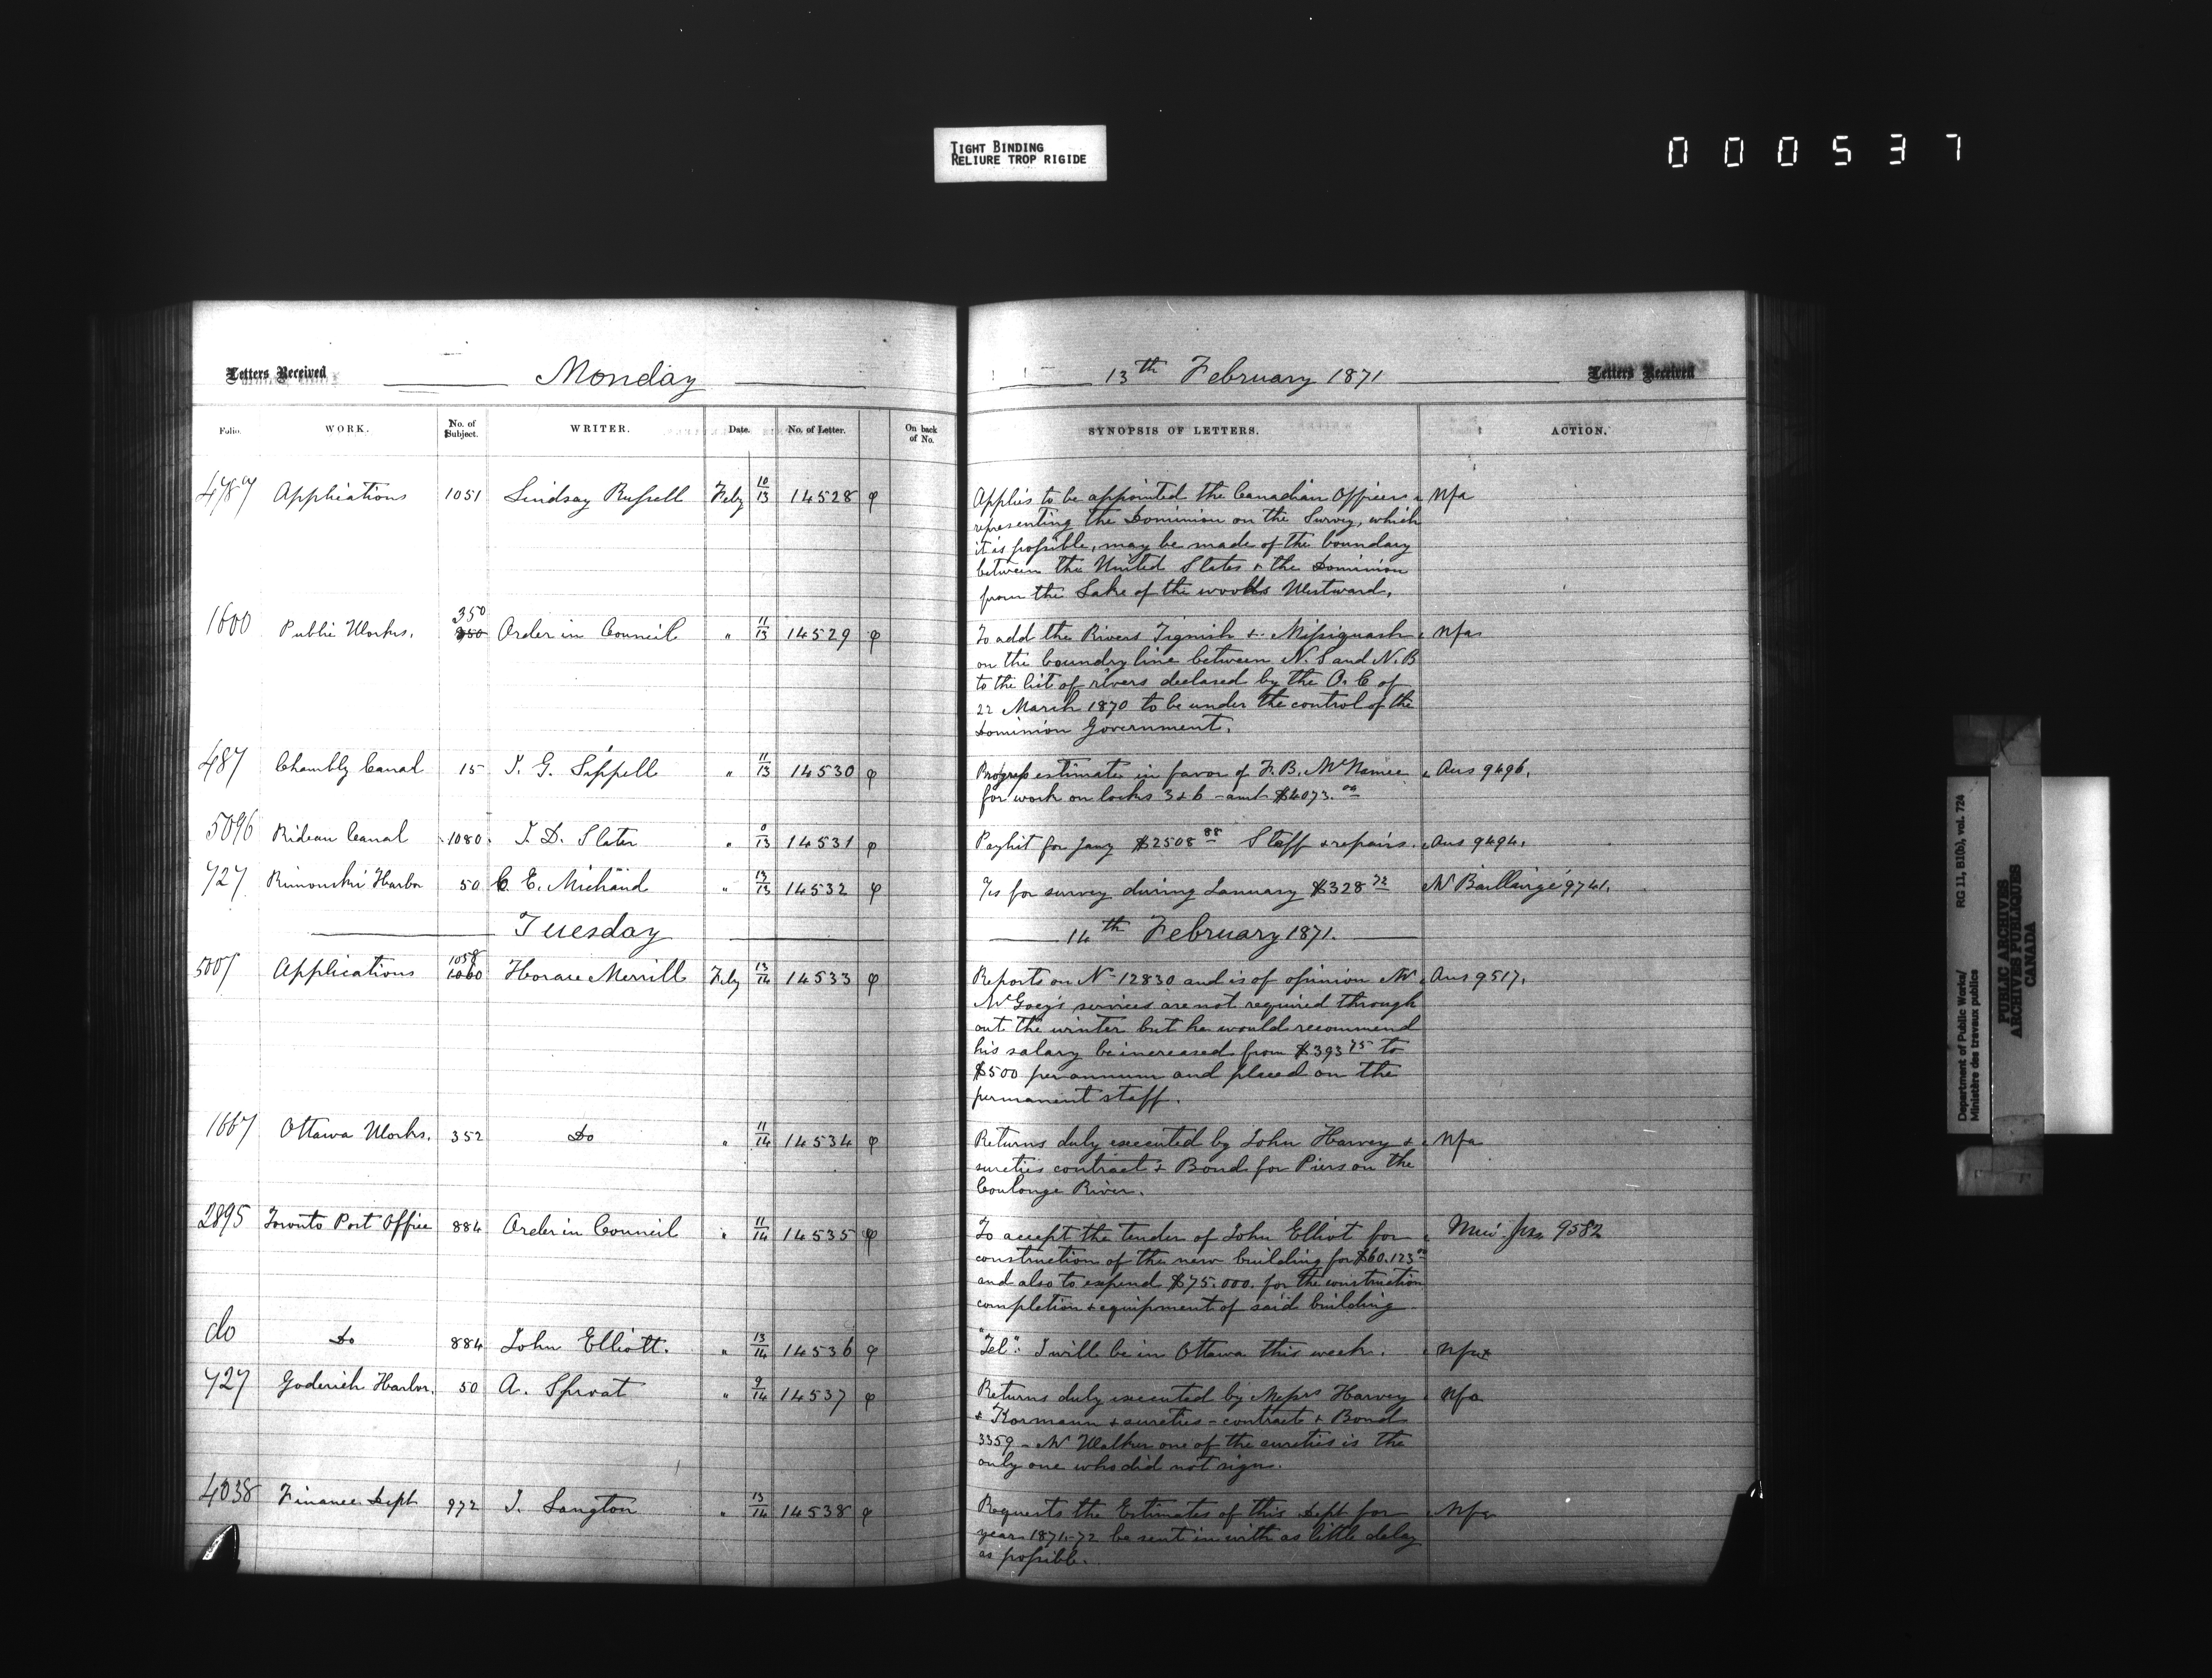 TIGHT BINDING
RELIURE TROP RIGIDE
000537
Letters Received
Monday
13th February 1871
Letters Received
Folio. WORK. No. of Subject. WRITER. Date. No. of Letter. On back of No. SYNOPSIS OF LETTERS. ACTION.
Applications 1051 Lindsay Russell Feby 10/13 14528 Applies to be appointed the Canadian Officer Nfa
representing the Dominion on the Survey, which
it is possible, may be made of the boundary
between the United States & the Dominion
from the Lake of the woods Westward.
350
1600 Public Works. 350 Order in Council " 11/13 14529 To add the Rivers Tignish & Missiquash Nfa
on the boundry line between N.S and N.B
to the list of rivers declared by the O.C of
22 March 1870 to be under the control of the
Dominion Government.
487 Chambly Canal 15 J. G. Sippell " 11/13 14530 Progress estimate in favor of F. B. McNamee Ans 9496.
for work on locks 3 & 6 - amt $4073.00
5096 Rideau Canal 1080 J. D. Slater " 14531 Paylist for Jany $2508 88 Staff & repairs. Ans 9494.
727 Rimouski Harbor 50 C. E. Michaud " 13/13 14532 for survey during January $328 72 Mr Baillairgé 9741.
Tuesday
14th February 1871.
1058
Applications 1060 Horace Merrill Feby 13/14 14533 Reports on No 12830 and is of opinion Mr Ans 9517.
McGoey's services are not required through
out the winter but he would recommend
his salary be increased from $393 75 to
$500 per annum and placed on the
permanent staff.
1667 Ottawa Works. 352 Do " 11/14 14534 Returns duly executed by John Harvey & Nfa
sureties contract & Bond for Piers on the
Coulonge River.
2895 Toronto Post Office 884 Order in Council " 11/14 14535 To accept the tender of John Elliot for 9582
construction of the new building for $60.123 00
and also to expend $75.000. for the construction
completion & equipment of said building
do Do 884 John Elliott. " 13/14 14536 "Tel": I will be in Ottawa this week. Nfa
727 Goderich Harbor. 50 A. Sproat " 9/14 14537 Returns duly executed by Messrs Harvey Nfa
& Kormann & sureties - contract & Bond
3359 - Mr Walker one of the sureties is the
only one who did not sign.
4038 Finance Dept 972 J. Langton " 13/14 14538 Requests the Estimates of this Dept for Nfa
year 1871-72 be sent in with as little delay
as possible.
Department of Public Works/
Ministère des travaux publics
RG 11, B1(b), vol. 724
PUBLIC ARCHIVES
ARCHIVES PUBLIQUES
CANADA